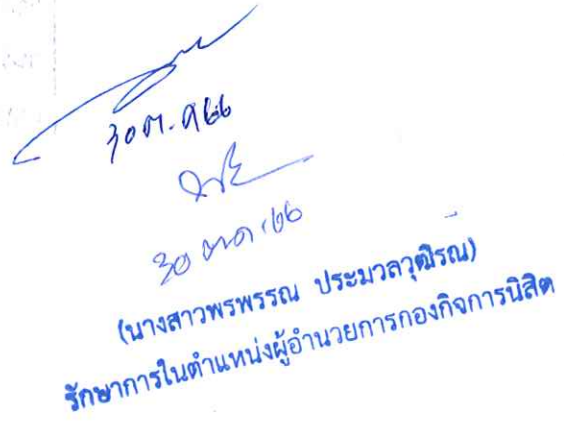 30 ต.ค 66
30 ต.ค. 66
(นางสาวพรพรรณ ประมวลวุฒิรณ)
รักษาการในตำแหน่งผู้อำนวยการกองกิจการนิสิต